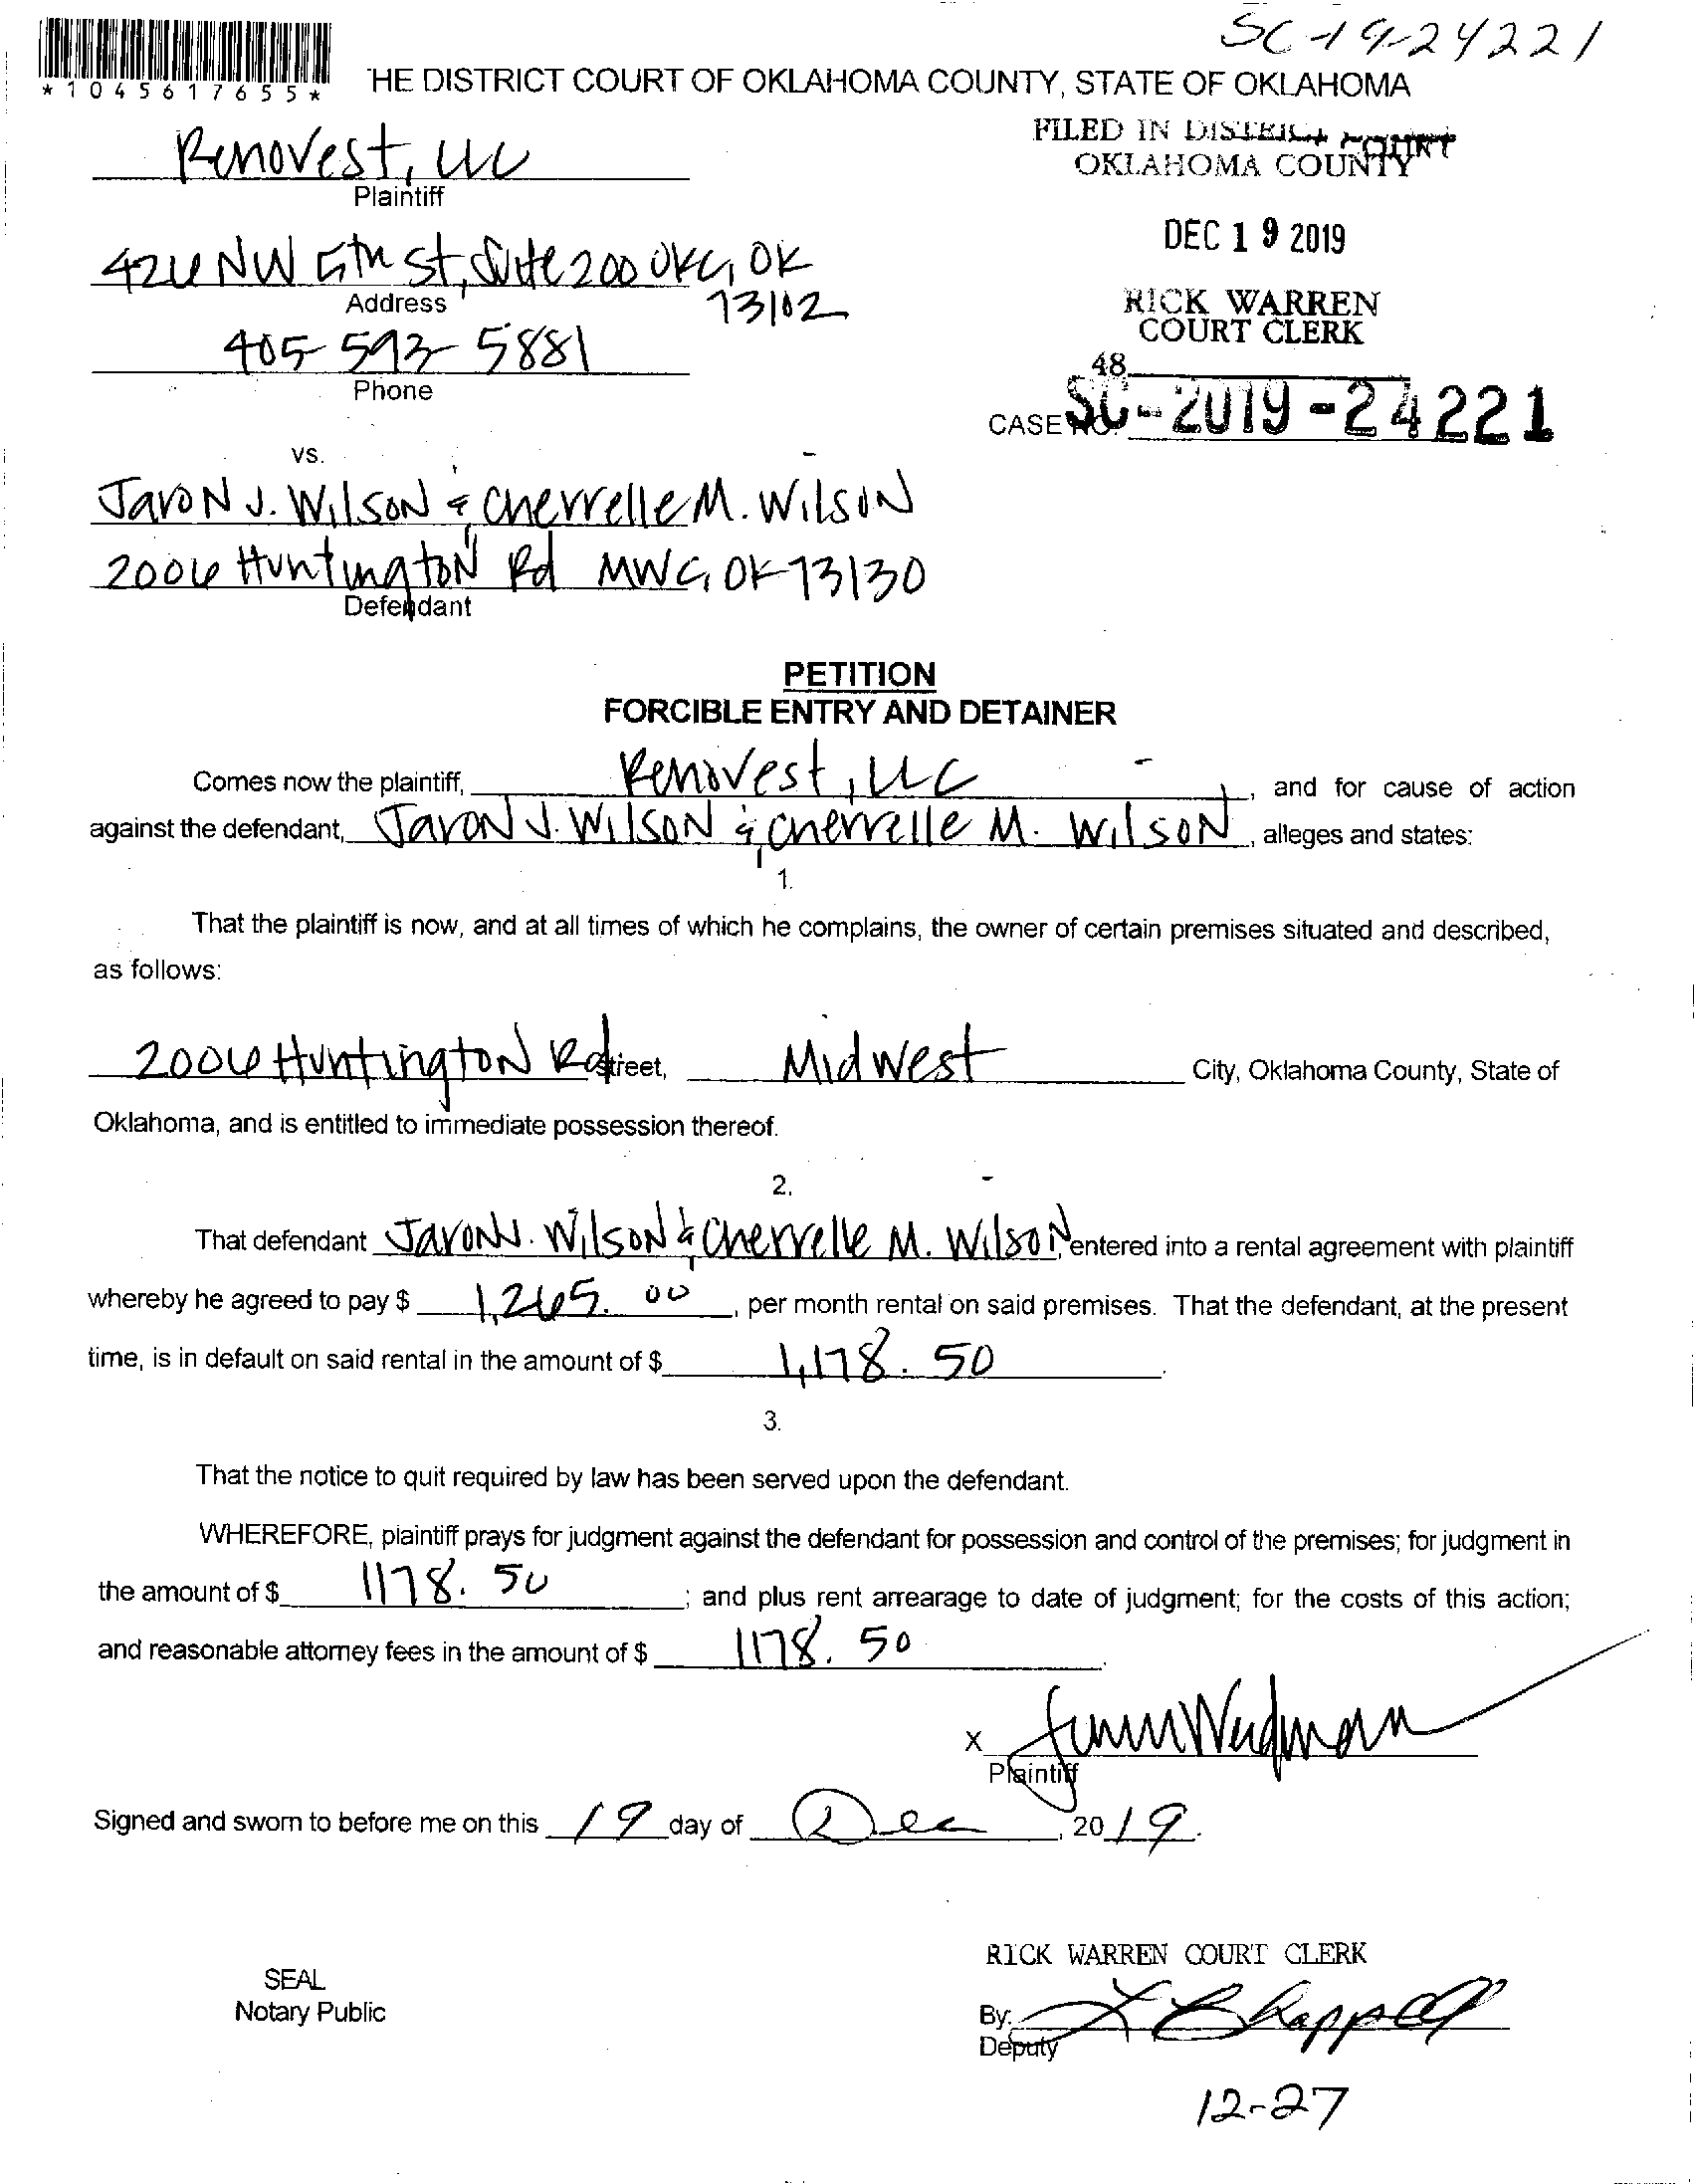 SC-19-24221
*1045617655*
HE DISTRICT COURT OF OKLAHOMA COUNTY, STATE OF OKLAHOMA
FILED IN DISTRICT COURT
OKLAHOMA COUNTY
Renovest, LLC
Plaintiff
DEC 19 2019
426 NW 5th St, Suite 200 OKC, OK
73102
Address
RICK WARREN
COURT CLERK
405-593-5881
Phone
48
CASE NO. SC-2019-24221
vs.
Jaron J. Wilson & Cherrelle M. Wilson
2006 Huntington Rd MWC, OK 73130
Defendant
PETITION
FORCIBLE ENTRY AND DETAINER
Comes now the plaintiff, Renovest, LLC, and for cause of action
against the defendant, Jaron J. Wilson & Cherrelle M. Wilson, alleges and states:
1.
That the plaintiff is now, and at all times of which he complains, the owner of certain premises situated and described,
as follows:
2006 Huntington Rd street, Midwest City, Oklahoma County, State of
Oklahoma, and is entitled to immediate possession thereof.
2.
That defendant Jaron J. Wilson & Cherrelle M. Wilson, entered into a rental agreement with plaintiff
whereby he agreed to pay $ 1,265.00, per month rental on said premises. That the defendant, at the present
time, is in default on said rental in the amount of $ 1,178.50.
3.
That the notice to quit required by law has been served upon the defendant.
WHEREFORE, plaintiff prays for judgment against the defendant for possession and control of the premises; for judgment in
the amount of $ 1178.50; and plus rent arrearage to date of judgment; for the costs of this action;
and reasonable attorney fees in the amount of $ 1178.50.
X
Plaintiff
Signed and sworn to before me on this 19 day of Dec, 2019.
RICK WARREN COURT CLERK
SEAL
Notary Public
By: L Chappell
Deputy
12-27